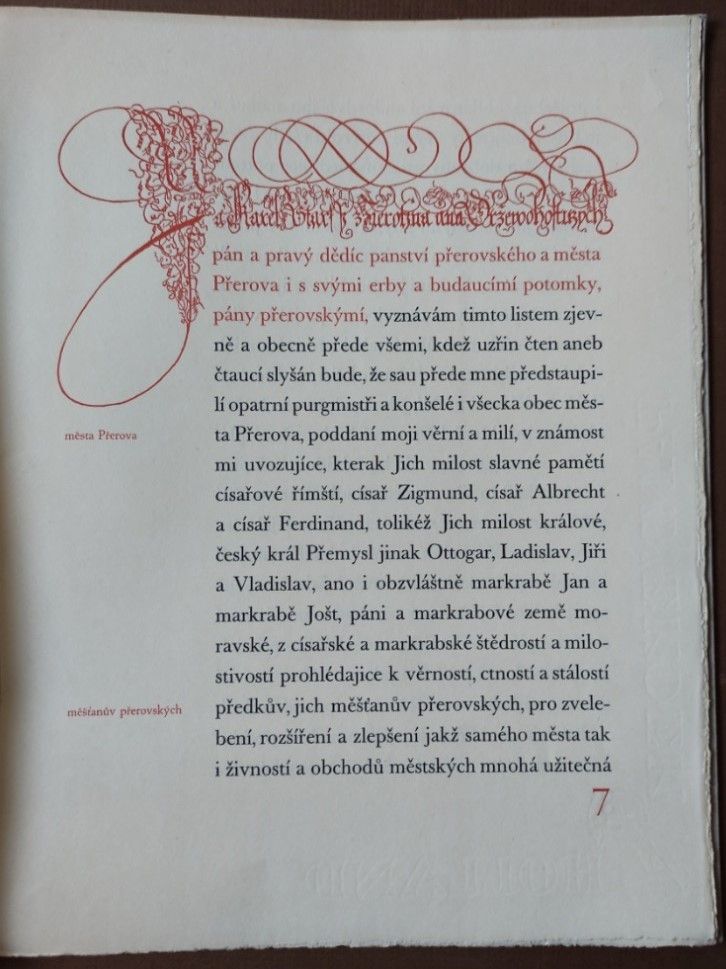 Já Karel starší z Žierotína
pán a pravý dědíc panství přerovského a města
Přerova i s svými erby a budaucímí potomky,
pány přerovskýmí, vyznávám timto listem zjev-
ně a obecně přede všemi, kdež uzřin čten aneb
čtaucí slyšán bude, že sau přede mne předstaupi-
lí opatrní purgmistři a konšelé i všecka obec měs-
města Přerova
ta Přerova, poddaní moji věrní a milí, v známost
mi uvozujíce, kterak Jich milost slavné pamětí
císařové římští, císař Zigmund, císař Albrecht
a císař Ferdinand, tolikéž Jich milost králové,
český král Přemysl jinak Ottogar, Ladislav, Jiři
a Vladislav, ano i obzvláštně markrabě Jan a
markrabě Jošt, páni a markrabové země mo-
ravské, z císařské a markrabské štědrostí a milo-
stivostí prohlédajice k věrností, ctností a stálostí
měšťanův přerovských
předkův, jich měšťanův přerovských, pro zvele-
bení, rozšíření a zlepšení jakž samého města tak
i živností a obchodů městských mnohá užitečná
7